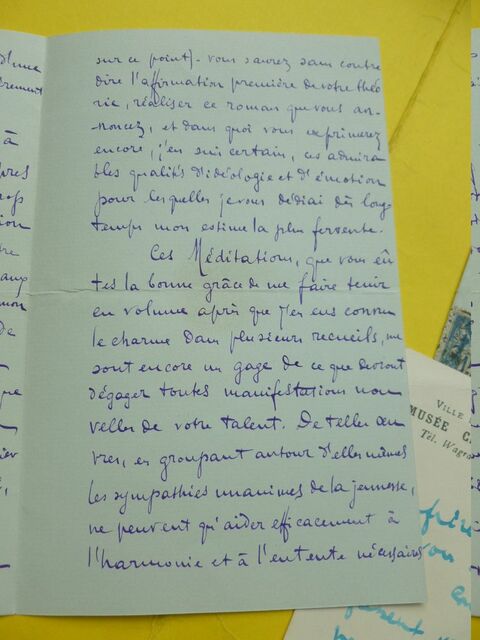 sur ce point). vous saurez sans contre
dire l'affirmation première de votre théo
rie, réaliser ce roman que vous an-
noncez, et dans quoi vous exprimerez
encore, j'en suis certain, ces admira
bles qualités d'idéologie et d'émotion
pour lesquelles je vous dédiai dès long-
temps mon estime la plus fervente.
Ces Méditations, que vous eû
tes la bonne grâce de me faire tenir
en volume après que j'en eus connu
le charme dans plusieurs recueils, me
sont encore un gage de ce que devront
dégager toutes manifestations nou
velles de votre talent. De telles œu
vres, en groupant autour d'elles-mêmes
les sympathies unanimes de la jeunesse,
ne peuvent qu'aider efficacement à
l'harmonie et à l'entente nécessaires
d'une
à
mon
de
que
VILLE
MUSÉE C.
Tél. Wagra